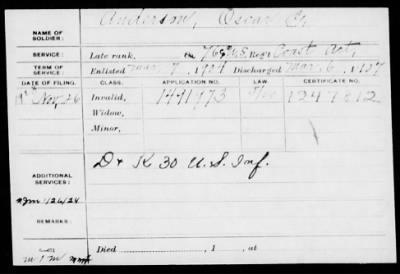 NAME OF SOLDIER: Anderson, Oscar
SERVICE: Late rank, 76 U.S. Reg't Coast Art.
TERM OF SERVICE: Enlisted Mar. 7, 1904 Discharged Mar. 6, 1907
DATE OF FILING. CLASS. APPLICATION NO. LAW. CERTIFICATE NO.
Nov 26 Invalid, 1491973 1247812
Widow,
Minor,
D + K 30 U.S. Inf.
ADDITIONAL SERVICES:
REMARKS:
Died , 1 , at